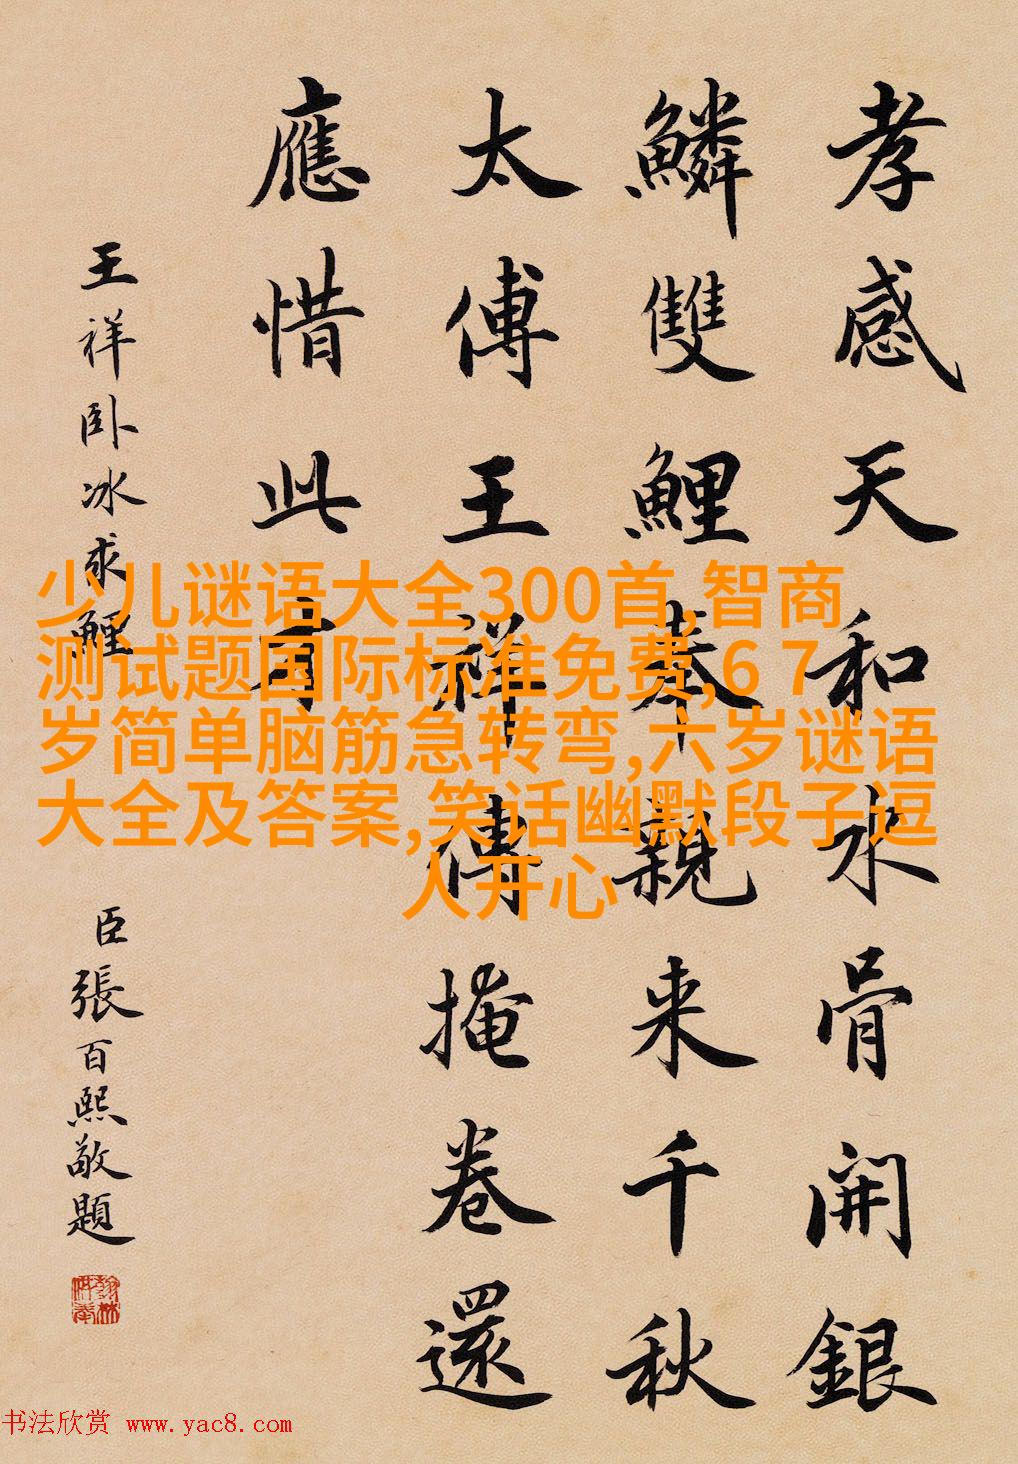 孝感天和水骨開銀
鱗雙鯉奉親来千秋
太傅王祥傳掩卷還
應惜此
王祥卧冰求鯉
臣張百熙敬題
少儿谜语大全300首,智商
测试题国际标准免费,6 7
岁简单脑筋急转弯,六岁谜语
大全及答案,笑话幽默段子逗
人开心
书法欣赏 www.yac8.com